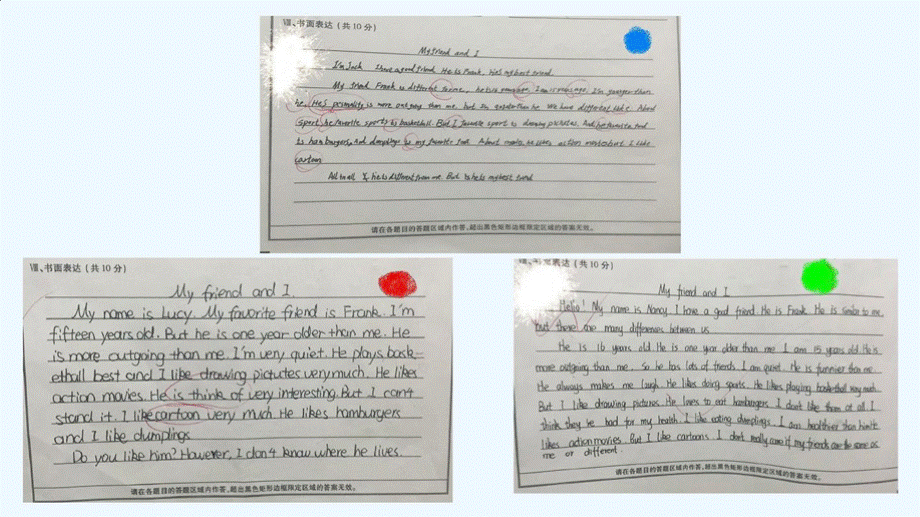 Ⅷ、书面表达(共10分)
My friend and I
I'm Jack I have a good friend. He is Frank. He's my best friend.
My friend Frank is different
than
he. He's is more outgoing than me. but I'm than he We have different About
sport, he favorite sports is basketball. But I favorite sport is drawing pictures. And
is hamburgers, And dumplings is my favorite About movie, he likes action movies but I like
cartoon
All in all he is different from me. But he is my best friend
请在各题目的答题区域内作答,超出黑色矩形边框限定区域的答案无效。
Ⅷ、书面表达(共10分)
My friend and I.
My name is Lucy. My favorite friend is Frank. I'm
fifteen years old. But he is one year older than me. He
is more outgoing than me. I'm very quiet. He plays bask-
etball best and I like drawing pictutes very much. He likes
action movies. He is think of very interesting. But I can4
stand it. I like cartoon very much. He likes hamburgers
and I like dumplings
Do you like him? However, I don4 know where he lives.
请在各题目的答题区域内作答,超出黑色矩形边框限定区域的答案无效。
表达(共10分)
My friend and I
Hello! My name is Nancy. I have a good friend. He is Frank. He is similar to me
but there are many differences between us
He is 16 years old He is one year older than me I am 15 years old He is
more outgoing than me. So he has lots of friends I am quiet. He is funnier than me.
He always makes me laugh. He likes doing sports. He likes playing very much.
But I like drawing pictures. He loves to eat hamburgers. I don't like them at all. I
think they be bad for my health. I like eating dumplings. I am healthier than him. He
likes action movies. But I like cartoons. I don't really care if my friends are the same as
me or different.
请在各题目的答题区域内作答,超出黑色矩形边框限定区域的答案无效。